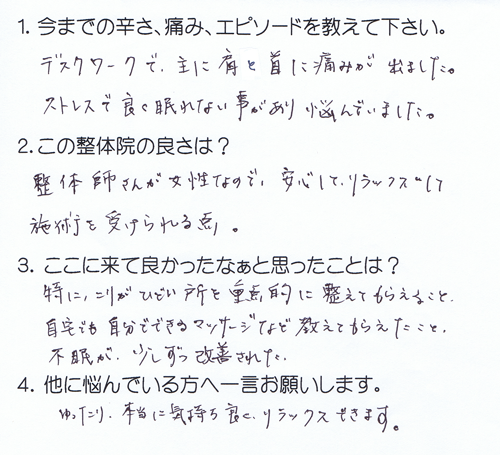 1. 今までの辛さ、痛み、エピソードを教えて下さい。
デスクワークで、主に肩と首に痛みが出ました。
ストレスで良く眠れない事があり悩んでいました。
2.この整体院の良さは？
整体師さんが女性なので、安心して、リラックスして
施術を受けられる点。
3. ここに来て良かったなぁと思ったことは？
特に、こりがひどい所を重点的に整えてもらえること、
自宅でも自分でできるマッサージなど教えてもらえたこと、
不眠が、少しずつ改善された。
4. 他に悩んでいる方へ一言お願いします。
ゆったり、本当に気持ち良く、リラックスできます。